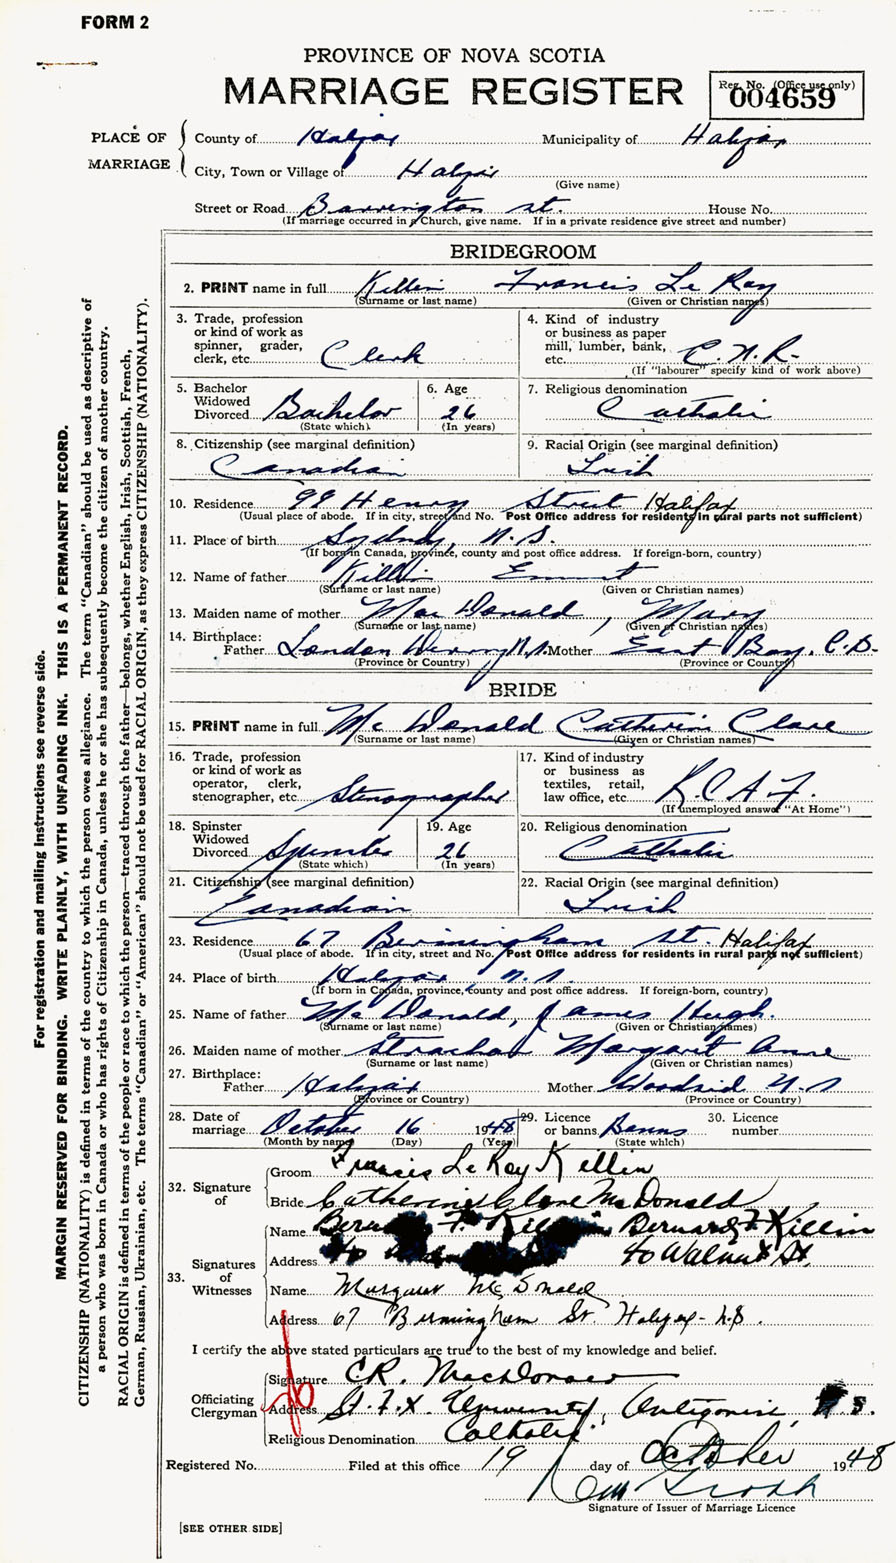 FORM 2
PROVINCE OF NOVA SCOTIA
MARRIAGE REGISTER
Reg. No. (Office use only)
004659
PLACE OF MARRIAGE
County of Halifax Municipality of Halifax
City, Town or Village of Halifax
(Give name)
Street or Road Barrington St. House No.
(If marriage occurred in a Church, give name. If in a private residence give street and number)
BRIDEGROOM
2. PRINT name in full Killin Francis Le Roy
(Surname or last name) (Given or Christian names)
3. Trade, profession or kind of work as spinner, grader, clerk, etc. Clerk
4. Kind of industry or business as paper mill, lumber, bank, etc. C.N.R.
(If "labourer" specify kind of work above)
5. Bachelor Widowed Divorced Bachelor
(State which)
6. Age 26
(In years)
7. Religious denomination Catholic
8. Citizenship (see marginal definition) Canadian
9. Racial Origin (see marginal definition) Irish
10. Residence 99 Henry Street Halifax
(Usual place of abode. If in city, street and No. Post Office address for residents in rural parts not sufficient)
11. Place of birth Sydney, N.S.
(If born in Canada, province, county and post office address. If foreign-born, country)
12. Name of father Killin
(Surname or last name) (Given or Christian names)
13. Maiden name of mother Mac Donald, Mary
(Surname or last name) (Given or Christian names)
14. Birthplace:
Father London Derry N.S. Mother East Bay, C.B.
(Province or Country) (Province or Country)
BRIDE
15. PRINT name in full Mc Donald Catherin Clare
(Surname or last name) (Given or Christian names)
16. Trade, profession or kind of work as operator, clerk, stenographer, etc. Stenographer
17. Kind of industry or business as textiles, retail, law office, etc. R.C.A.F.
(If unemployed answer "At Home")
18. Spinster Widowed Divorced Spinster
(State which)
19. Age 26
(In years)
20. Religious denomination Catholic
21. Citizenship (see marginal definition) Canadian
22. Racial Origin (see marginal definition) Irish
23. Residence 67 Bermingham St. Halifax
(Usual place of abode. If in city, street and No. Post Office address for residents in rural parts not sufficient)
24. Place of birth Halifax, N.S.
(If born in Canada, province, county and post office address. If foreign-born, country)
25. Name of father Mc Donald, James Hugh.
(Surname or last name) (Given or Christian names)
26. Maiden name of mother Strachan Margaret Anne
(Surname or last name) (Given or Christian names)
27. Birthplace:
Father Halifax Mother Woodside N.S
(Province or Country) (Province or Country)
28. Date of marriage October 16 1948
(Month by name) (Day) (Year)
29. Licence or banns Banns
(State which)
30. Licence number
32. Signature of
Groom Francis LeRoy Killin
Bride Catherine Clare McDonald
33. Signatures of Witnesses
Name Bernard F Killin
Address 40 Walnut St.
Name Margaret McDonald
Address 67 Bermingham St. Halifax - N.S.
I certify the above stated particulars are true to the best of my knowledge and belief.
Officiating Clergyman
Signature C.R. MacDonald
Address St. F.X. University, Antigonish, N.S.
Religious Denomination Catholic
Registered No. Filed at this office 19 day of October 1948
Signature of Issuer of Marriage Licence
[SEE OTHER SIDE]
For registration and mailing instructions see reverse side.
MARGIN RESERVED FOR BINDING. WRITE PLAINLY, WITH UNFADING INK. THIS IS A PERMANENT RECORD.
CITIZENSHIP (NATIONALITY) is defined in terms of the country to which the person owes allegiance. The term "Canadian" should be used as descriptive of
a person who was born in Canada or who has rights of Citizenship in Canada, unless he or she has subsequently become the citizen of another country.
RACIAL ORIGIN is defined in terms of the people or race to which the person—traced through the father—belongs, whether English, Irish, Scottish, French,
German, Russian, Ukrainian, etc. The terms "Canadian" or "American" should not be used for RACIAL ORIGIN, as they express CITIZENSHIP (NATIONALITY).